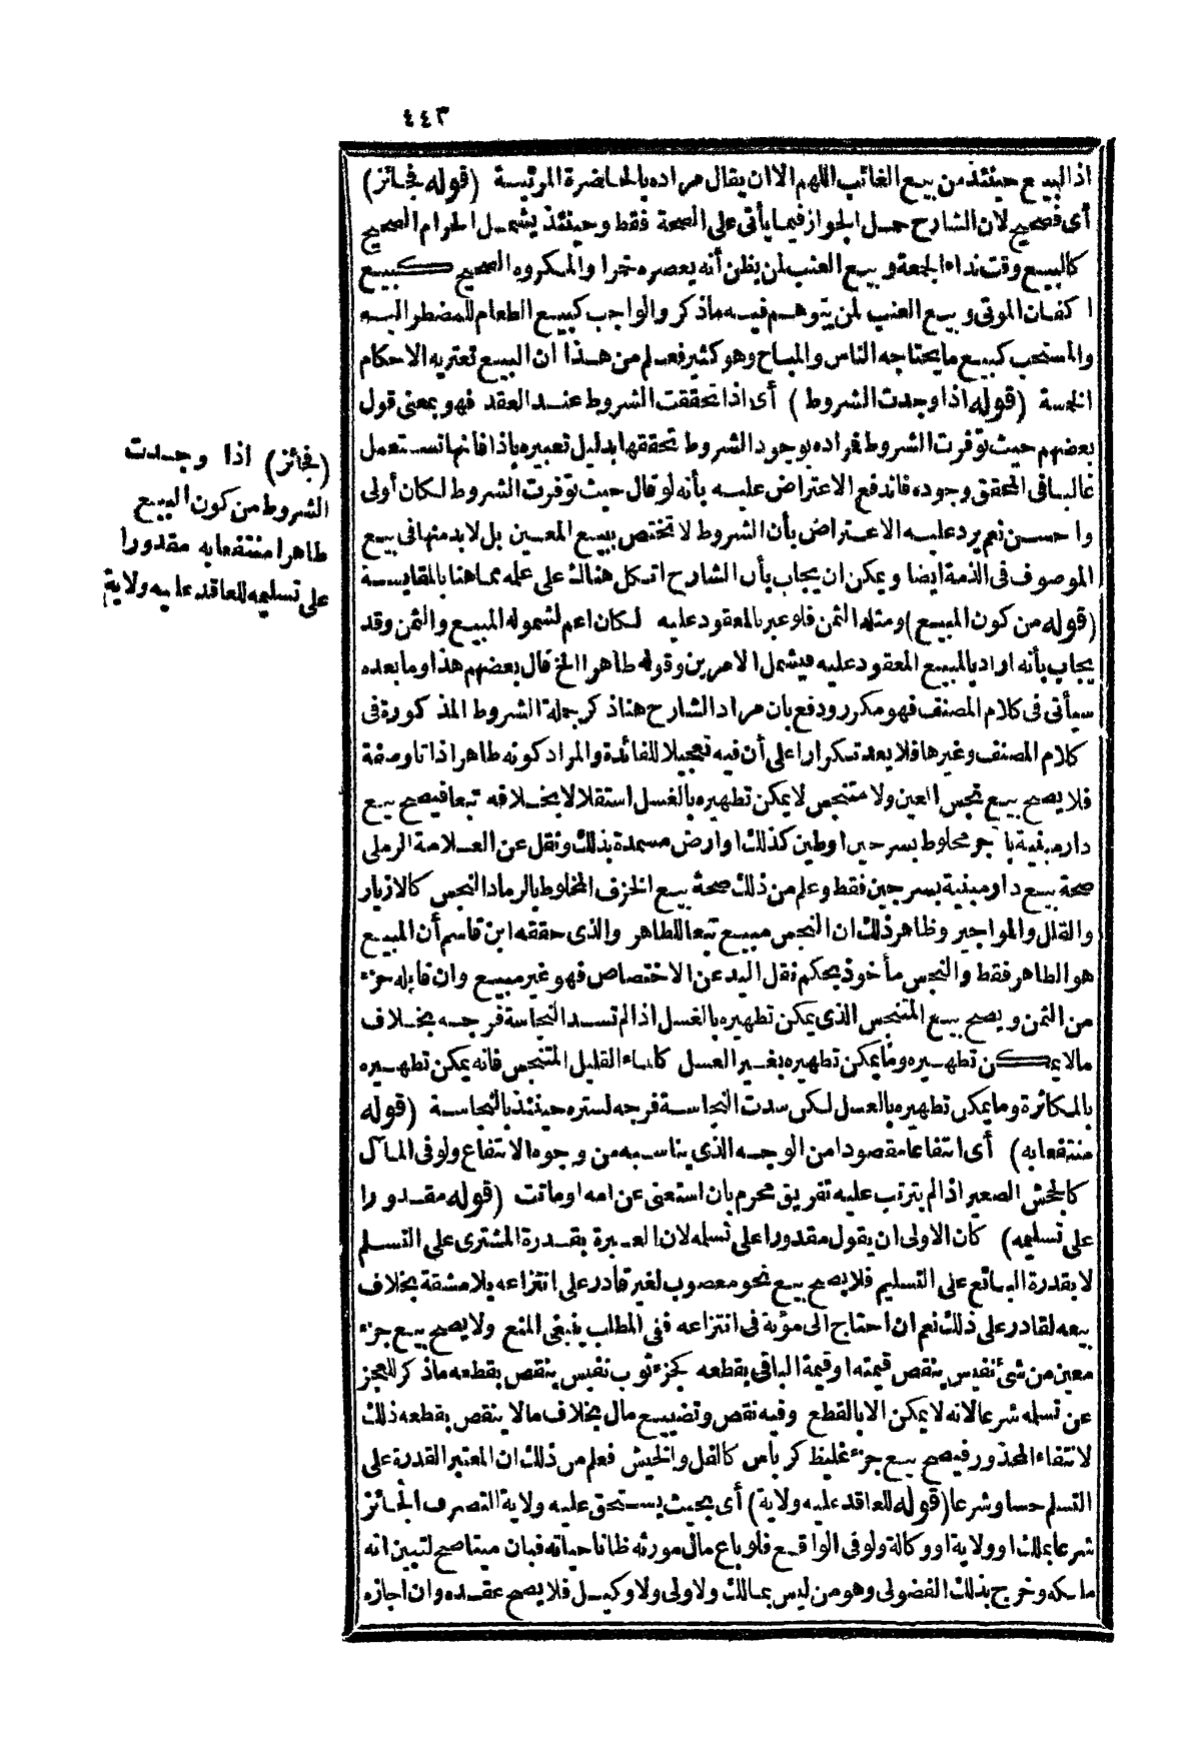 ٤٤٣
اذ البيع حينئذ من بيع الغائب اللهم الا ان يقال مراده بالحاضرة المرئيسة (قوله فجائز)
أى فصحيح لان الشارح حمل الجواز فيما يأتى على الصحة فقط وحينئذ يشمل الحرام الصحيح
كالبيع وقت نداء الجمعة وبيع العنب لمن يظن أنه يعصره خمرا والمكروه الصحيح كبيع
ا كفان الموتى وبيع العنب لمن يتوهم فيه ماذكر والواجب كبيع الطعام للمضطر اليه
والمستحب كبيع ما يحتاجه الناس والمباح وهو كثير فعلم من هذا ان البيع تعتريه الاحكام
الخمسة (قوله اذا وجدت الشروط) أى اذا تحققت الشروط عند العقد فهو بمعنى قول
بعضهم حيث توفرت الشروط فمراده بوجود الشروط تحققها بدليل تعبيره باذا فانها تستعمل
غالبا فى المحقق وجوده فاندفع الاعتراض عليه بأنه لو قال حيث توفرت الشروط لكان أولى
واحسن نعم يرد عليه الاعتراض بأن الشروط لا تختص ببيع المعين بل لا بد منها فى بيع
الموصوف فى الذمة ايضا ويمكن ان يجاب بأن الشارح اتكل هناك على علمه مما هنا بالمقايسة
(قوله من كون المبيع) ومثله الثمن فلو عبر بالمعقود عليه لكان اعم لشموله المبيع والثمن وقد
يجاب بأنه اراد بالمبيع المعقود عليه فيشمل الامرين وقوله طاهرا الخ قال بعضهم هذا وما بعده
سيأتى فى كلام المصنف فهو مكرر ودفع بان مراد الشارح هنا ذكر جملة الشروط المذكورة فى
كلام المصنف وغيرها فلا يعد تكرارا على أن فيه تعجيلا للفائدة والمراد كونه طاهرا ذاتا وصفة
فلا يصح بيع نجس العين ولا متنجس لا يمكن تطهيره بالغسل استقلالا بخلافه تبعا فيصح بيع
دار مبنية بآجر مخلوط بسرجين او طين كذلك او ارض مسمدة بذلك ونقل عن العلامة الرملى
صحة بيع دار مبنية بسرجين فقط وعلم من ذلك صحة بيع الخزف المخلوط بالرماد النجس كالازيار
والقلل والمواجير وظاهر ذلك ان النجس مبيع تبعا للطاهر والذى حققه ابن قاسم أن المبيع
هو الطاهر فقط والنجس مأخوذ بحكم نقل اليد عن الاختصاص فهو غير مبيع وان قابله جزء
من الثمن ويصح بيع المتنجس الذى يمكن تطهيره بالغسل اذا لم تسد النجاسة فرجه بخلاف
مالا يمكن تطهيره وما يمكن تطهيره بغير الغسل كالماء القليل المتنجس فانه يمكن تطهيره
بالمكاثرة وما يمكن تطهيره بالغسل لكن سدت النجاسة فرجه لستره حينئذ بالنجاسة (قوله
منتفعا به) أى انتفاعا مقصودا من الوجه الذى يناسبه من وجوه الانتفاع ولو فى المآل
كالجحش الصغير اذا لم يترتب عليه تفريق محرم بان استغنى عن امه او ماتت (قوله مقدورا
على تسليمه) كان الاولى ان يقول مقدورا على تسلمه لان العبرة بقدرة المشترى على التسلم
لا بقدرة البائع على التسليم فلا يصح بيع نحو مغصوب لغير قادر على انتزاعه بلا مشقة بخلاف
بيعه لقادر على ذلك نعم ان احتاج الى مؤنة فى انتزاعه ففى المطلب ينبغى المنع ولا يصح بيع جزء
معين من شئ نفيس ينقص قيمته او قيمة الباقى بقطعه كجزء ثوب نفيس ينقص بقطعه ماذكر للعجز
عن تسلمه شرعا لانه لا يمكن الا بالقطع وفيه نقص وتضييع مال بخلاف مالا ينقص بقطعه ذلك
لانتفاء المحذور فيصح بيع جزء غليظ كرباس كالفل والخيش فعلم من ذلك ان المعتبر القدرة على
التسلم حسا وشرعا (قوله للعاقد عليه ولاية) أى بحيث يستحق عليه ولاية التصرف الجائز
شرعا بملك او ولاية او وكالة ولو فى الواقع فلو باع مال مورثه ظانا حياته فبان ميتا صح لتبين انه
ملكه وخرج بذلك الفضولى وهو من ليس بمالك ولا ولى ولا وكيل فلا يصح عقده وان اجازه
(فجائز) اذا وجدت
الشروط من كون المبيع
طاهرا منتفعا به مقدورا
على تسليمه للعاقد عليه ولاية